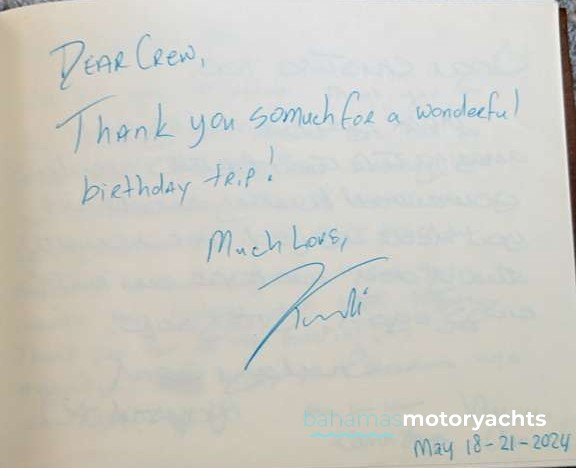 DEAR CREW,
Thank you so much for a wonderful
birthday trip!
Much Love,
bahamasmotoryachts
May 18-21-2024